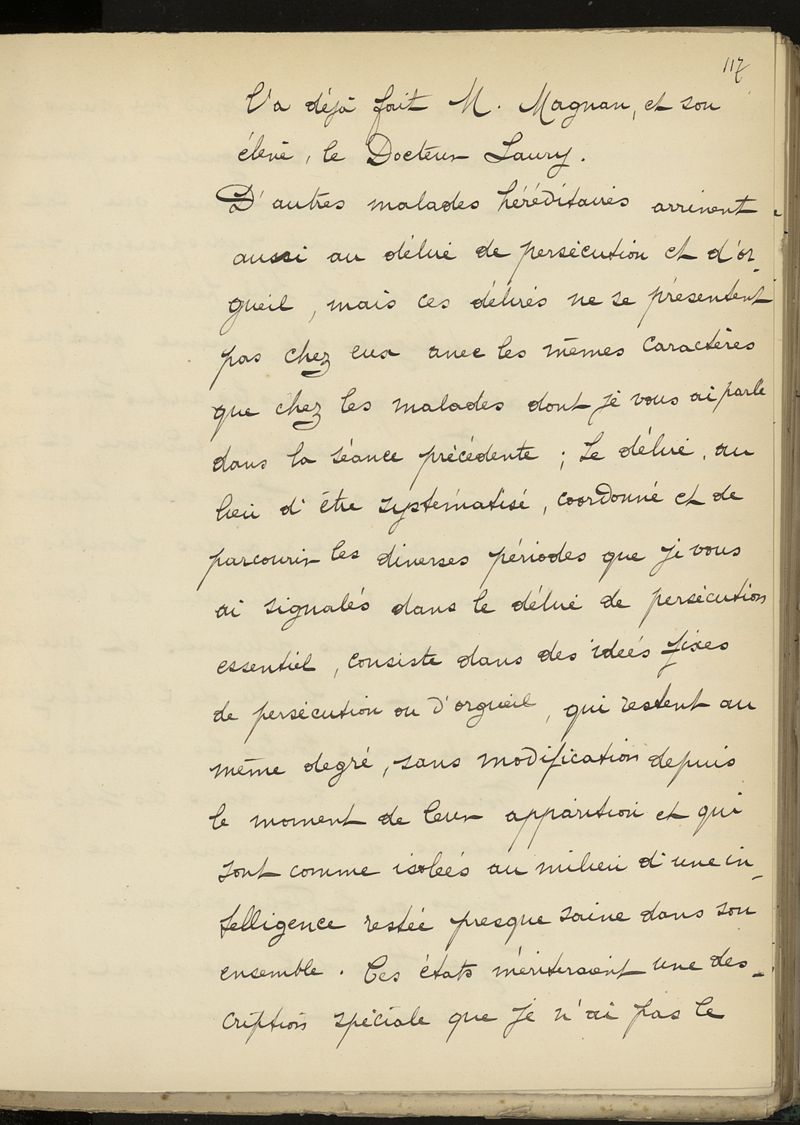 117
l'a déjà fait M. Magnan, et son
élève, le Docteur Saury.
D'autres malades héréditaires arrivent
aussi au délire de persécution et d'or-
gueil, mais ces délires ne se présentent
pas chez eux avec les mêmes caractères
que chez les malades dont je vous ai parlé
dans la séance précédente ; Le délire, au
lieu d'être systématisé, coordonné et de
parcourir les diverses périodes que je vous
ai signalés dans le délire de persécution
essentiel, consiste dans des idées fixes
de persécution ou d'orgueil, qui restent au
même degré, sans modification depuis
le moment de leur apparition et qui
sont comme isolées au milieu d'une in-
telligence restée presque saine dans son
ensemble. Ces états mériteraient une des-
cription spéciale que je n'ai pas le